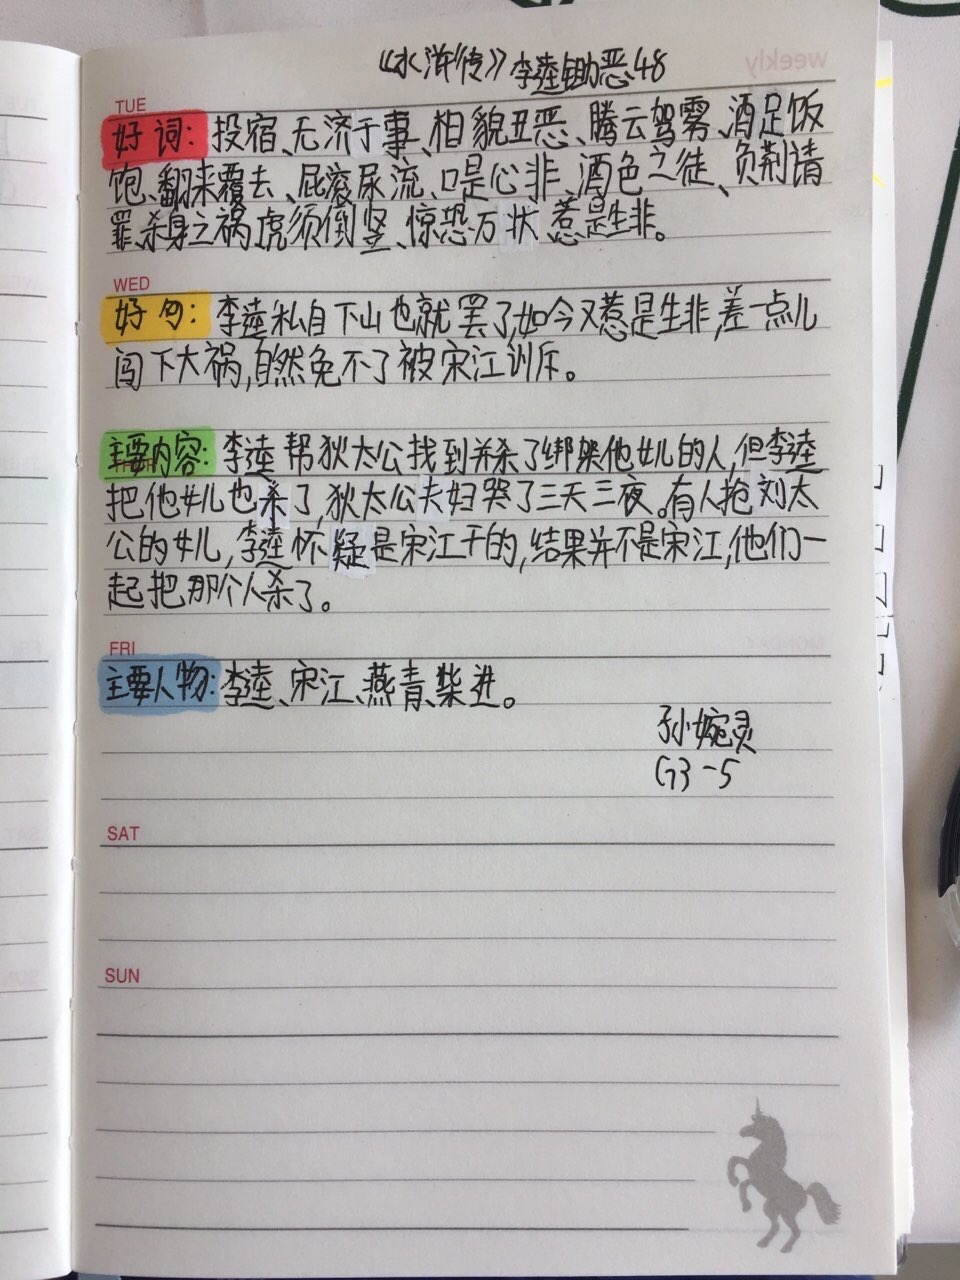 weekly
《水浒传》李逵锄恶48
TUE
好词：投宿、无济于事、相貌丑恶、腾云驾雾、酒足饭
饱、翻来覆去、屁滚尿流、口是心非、酒色之徒、负荆请
罪、杀身之祸、虎须倒竖、惊恐万状、惹是生非。
WED
好句：李逵私自下山也就罢了,如今又惹是生非,差一点儿
闯下大祸,自然免不了被宋江训斥。
主要内容：李逵帮狄太公找到并杀了绑架他女儿的人,但李逵
把他女儿也杀了,狄太公夫妇哭了三天三夜。有人抢刘太
公的女儿,李逵怀疑是宋江干的,结果并不是宋江,他们一
起把那个人杀了。
FRI
主要人物：李逵、宋江、燕青、柴进。
孙婉灵
G3-5
SAT
SUN